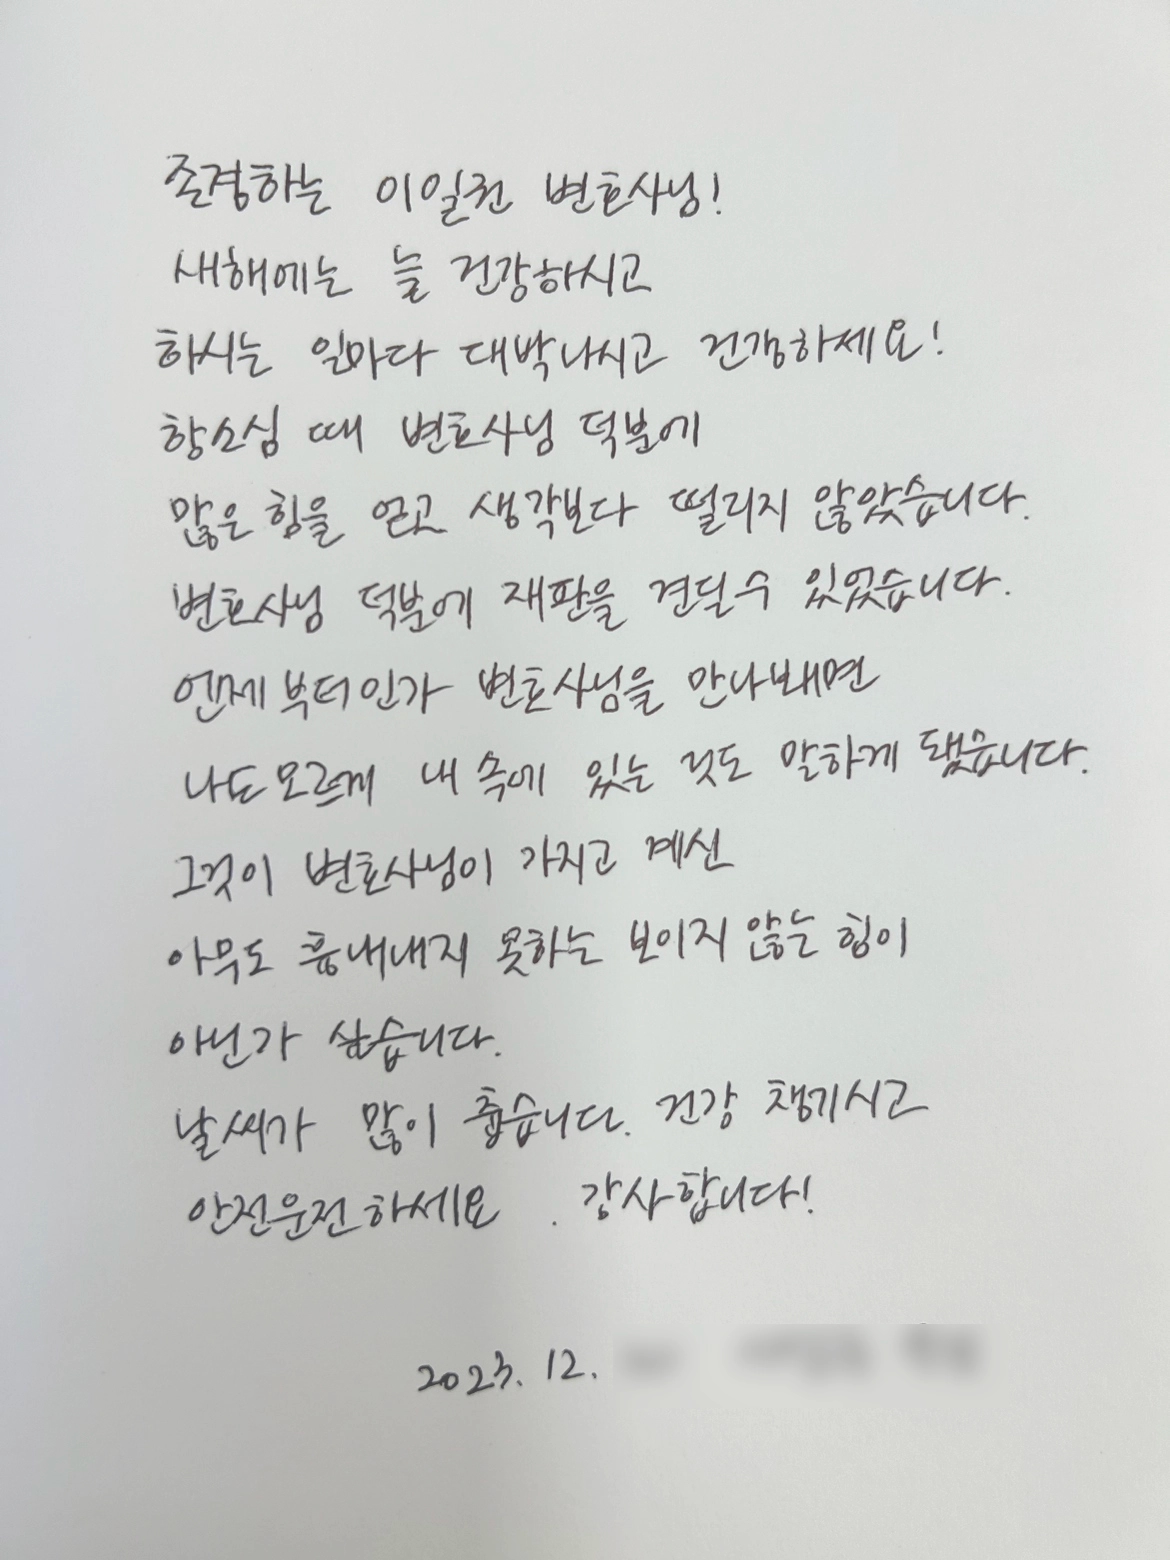 존경하는 이일권 변호사님!
새해에는 늘 건강하시고
하시는 일마다 대박나시고 건강하세요!
항소심 때 변호사님 덕분에
많은 힘을 얻고 생각보다 떨리지 않았습니다.
변호사님 덕분에 재판을 견딜수 있었습니다.
언제부터인가 변호사님을 만나뵈면
나도모르게 내 속에 있는 것도 말하게 됐습니다.
그것이 변호사님이 가지고 계신
아무도 흉내내지 못하는 보이지 않는 힘이
아닌가 싶습니다.
날씨가 많이 춥습니다. 건강 챙기시고
안전운전하세요. 감사합니다!
2023. 12.